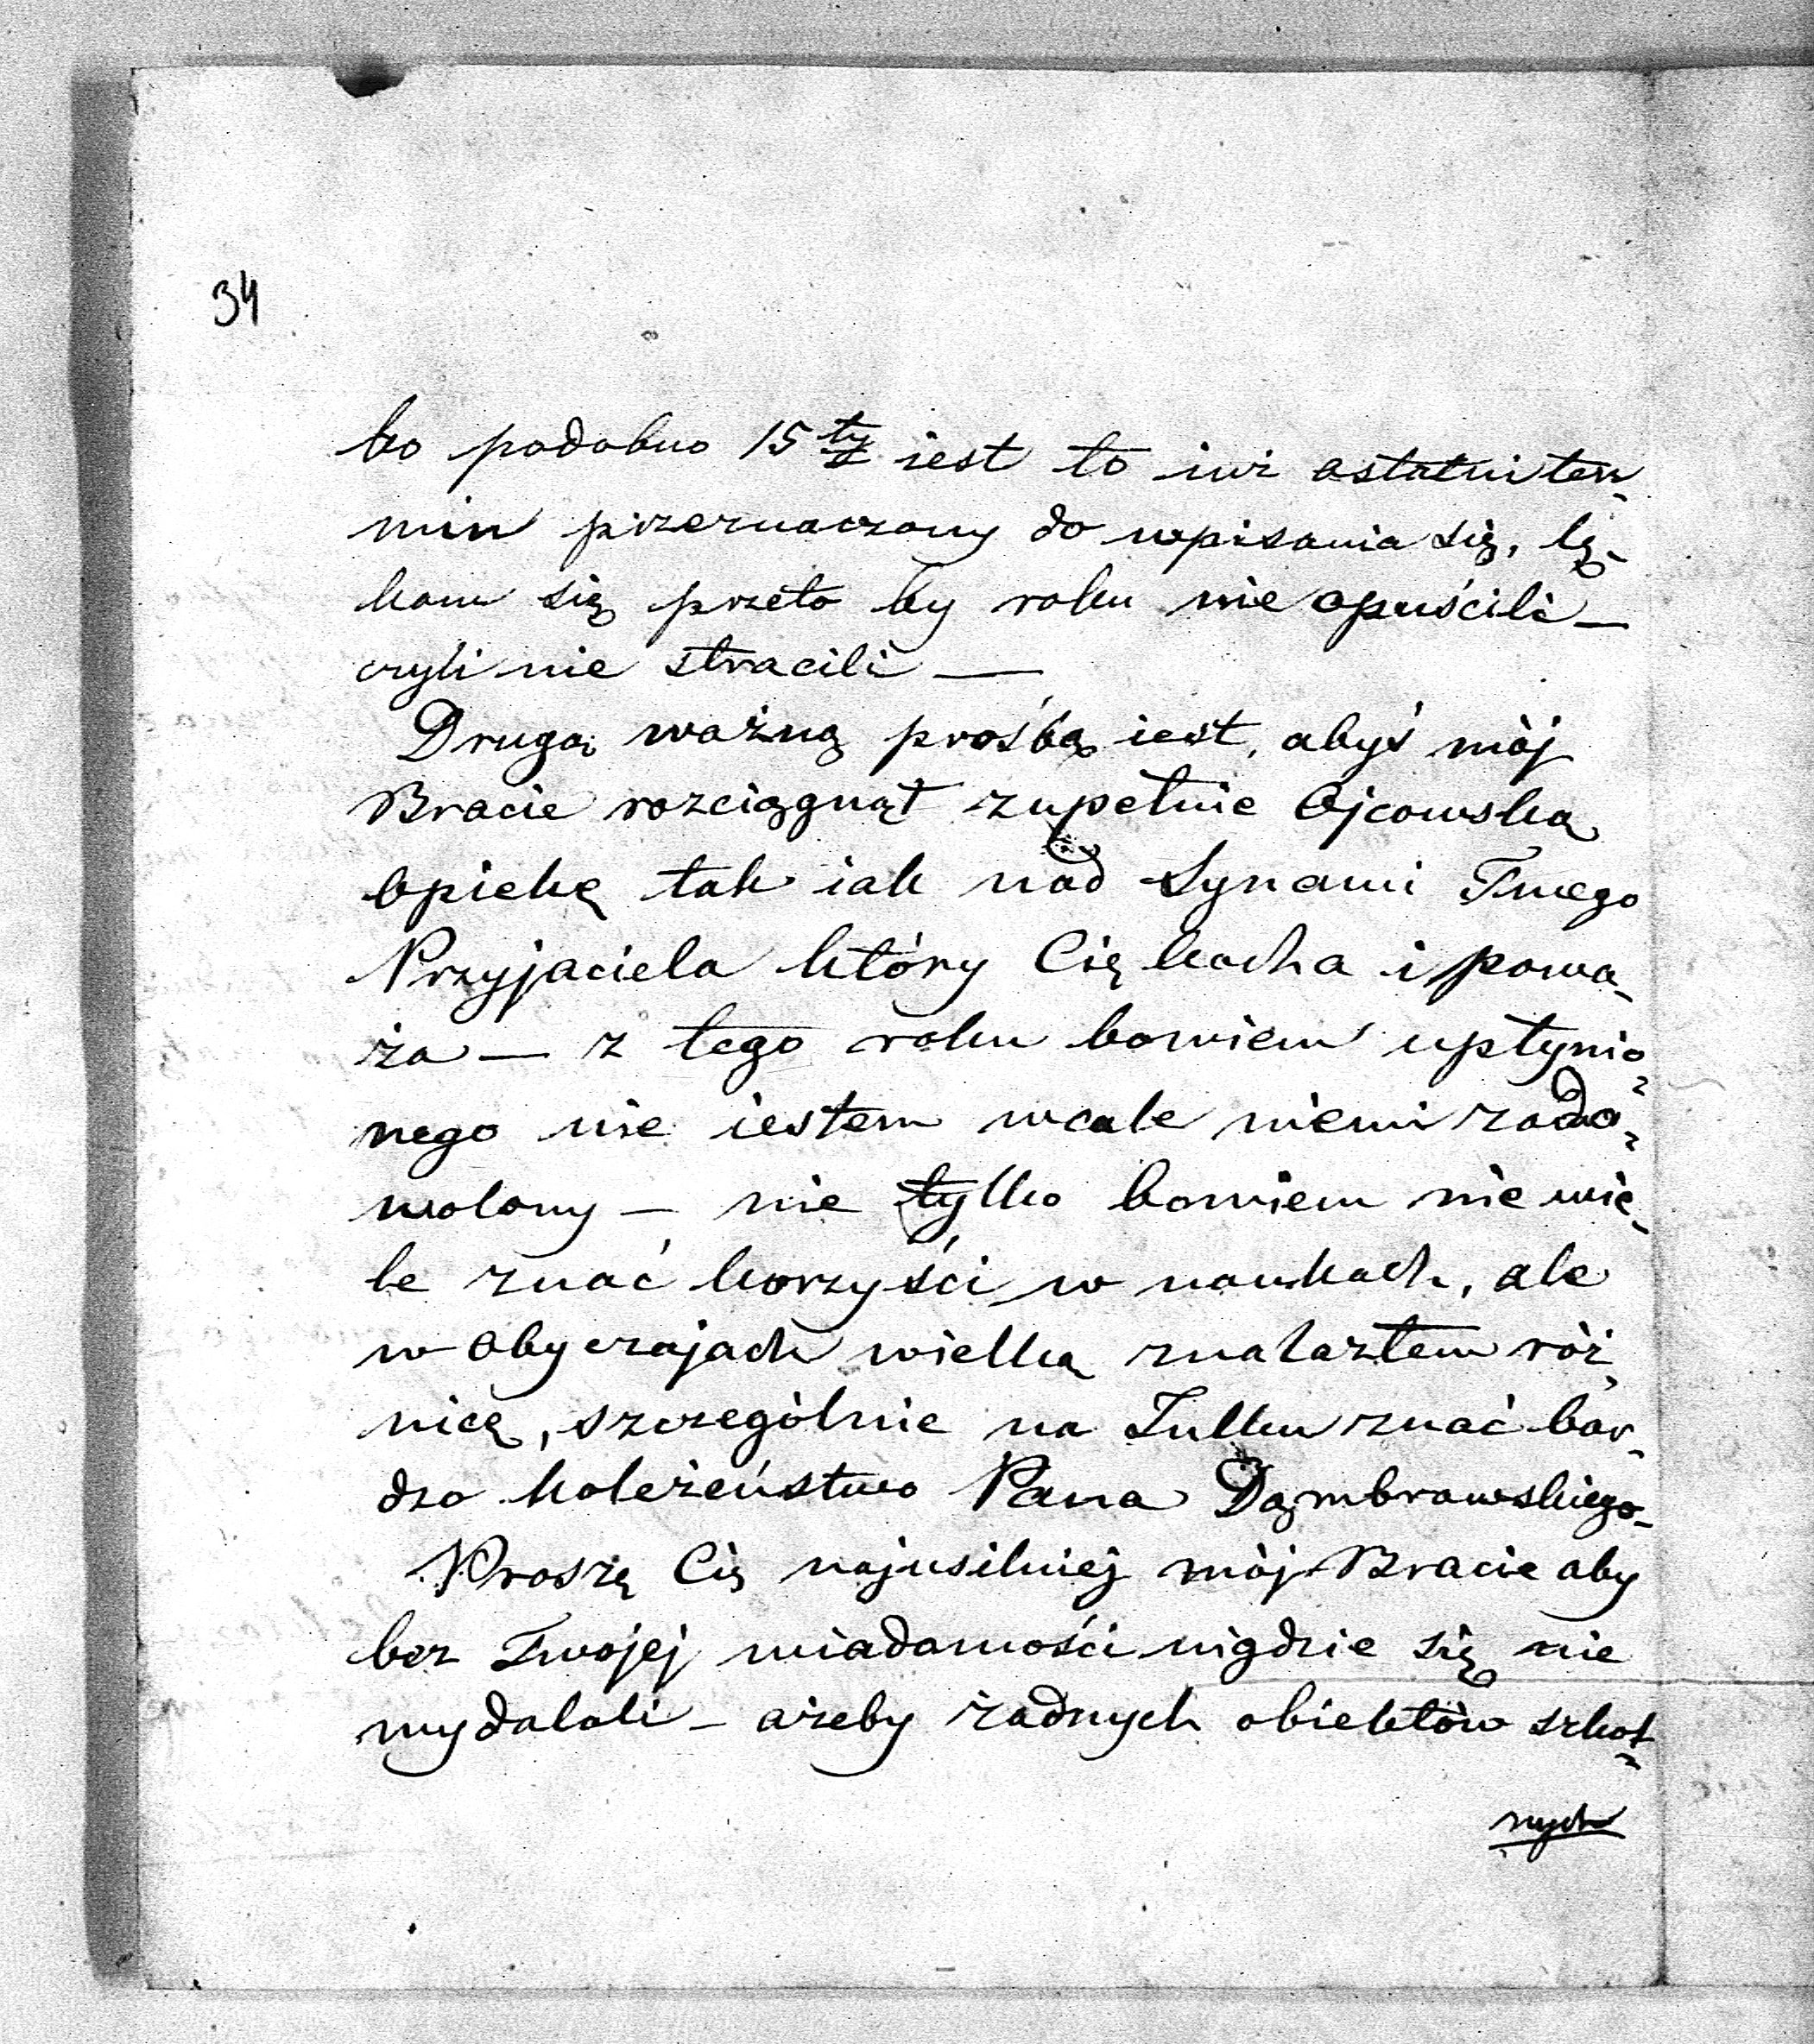 34
bo podobno 15ty iest to iuż ostatni ter-
min przeznaczony do wpisania się, lę-
kam się przeto by roku nie opuścili —
czyli nie stracili —
Drugą ważną prośbą iest, abyś mój
Bracie rozciągnął zupełnie Ojcowską
Opiekę tak iak nad Synami Twego
Przyjaciela który Cię kocha i powa-
ża — z tego roku bowiem upłynio-
nego nie iestem wcale niemi zado-
wolony — nie tylko bowiem nie wie-
le znać korzyści w naukach, ale
w obyczajach wielką znalazłem róż-
nicę, szczególnie na Julku znać bar-
dzo koleżeństwo Pana Dąmbrowskiego —
Proszę Cię najusilniej mój Bracie aby
bez Twojej wiadomości nigdzie się nie
wydalali — ażeby żadnych obiektów szkol-
nych